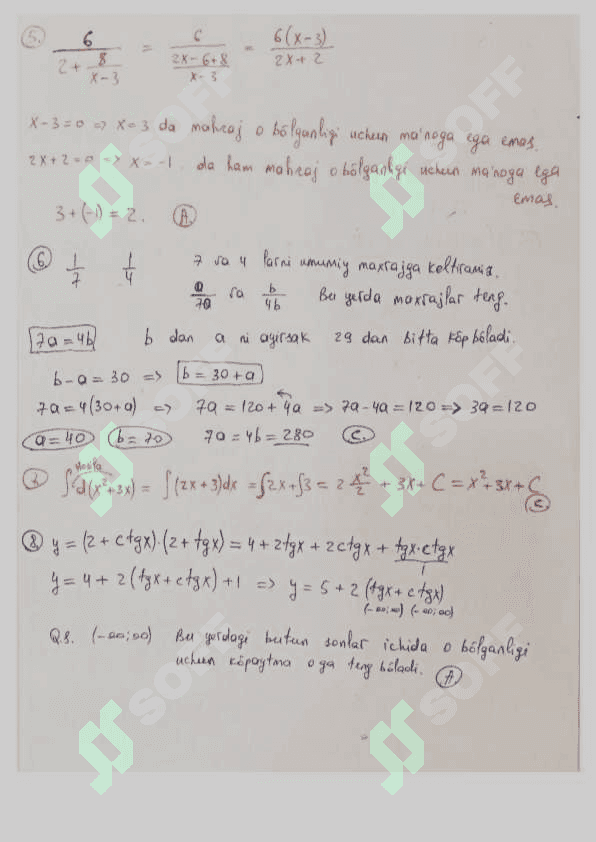 5. 6/(2 + 8/(x-3)) = 6/((2x-6+8)/(x-3)) = 6(x-3)/(2x+2)
x-3=0 => x=3 da mahraj 0 bölganligi uchun ma'noga ega emas.
2x+2=0 => x=-1. da ham mahraj 0 bölganligi uchun ma'noga ega
emas.
3+(-1)=2. A
6. 1/7 1/4 7 va 4 larni umumiy maxrajga keltiramiz.
a/7a va b/4b Bu yerda maxrajlar teng.
7a=4b b dan a ni ayirsak 29 dan bitta köp böladi.
b-a=30 => b=30+a
7a=4(30+a) => 7a=120+4a => 7a-4a=120 => 3a=120
a=40 b=70 7a=4b=280 C.
Hosila
∫d(x²+3x) = ∫(2x+3)dx = ∫2x+∫3 = 2 x²/2 + 3x + C = x²+3x+C
C
8 y=(2+ctgx)·(2+tgx)=4+2tgx+2ctgx+tgx·ctgx
1
y=4+2(tgx+ctgx)+1 => y=5+2(tgx+ctgx)
(-∞;∞) (-∞;∞)
(-∞;∞) Bu yerdagi butun sonlar ichida 0 bölganligi
uchun köpaytma 0 ga teng böladi. A
SOFF
SOFF
SOFF
SOFF
SOFF
SOFF